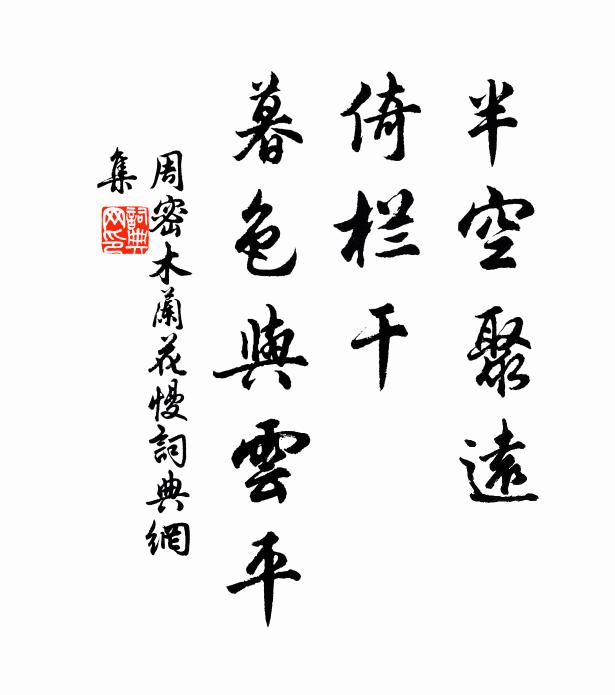 半空聚遠
倚栏干
暮色與雲平
周密木蘭花慢詞典網
集
詞典网印